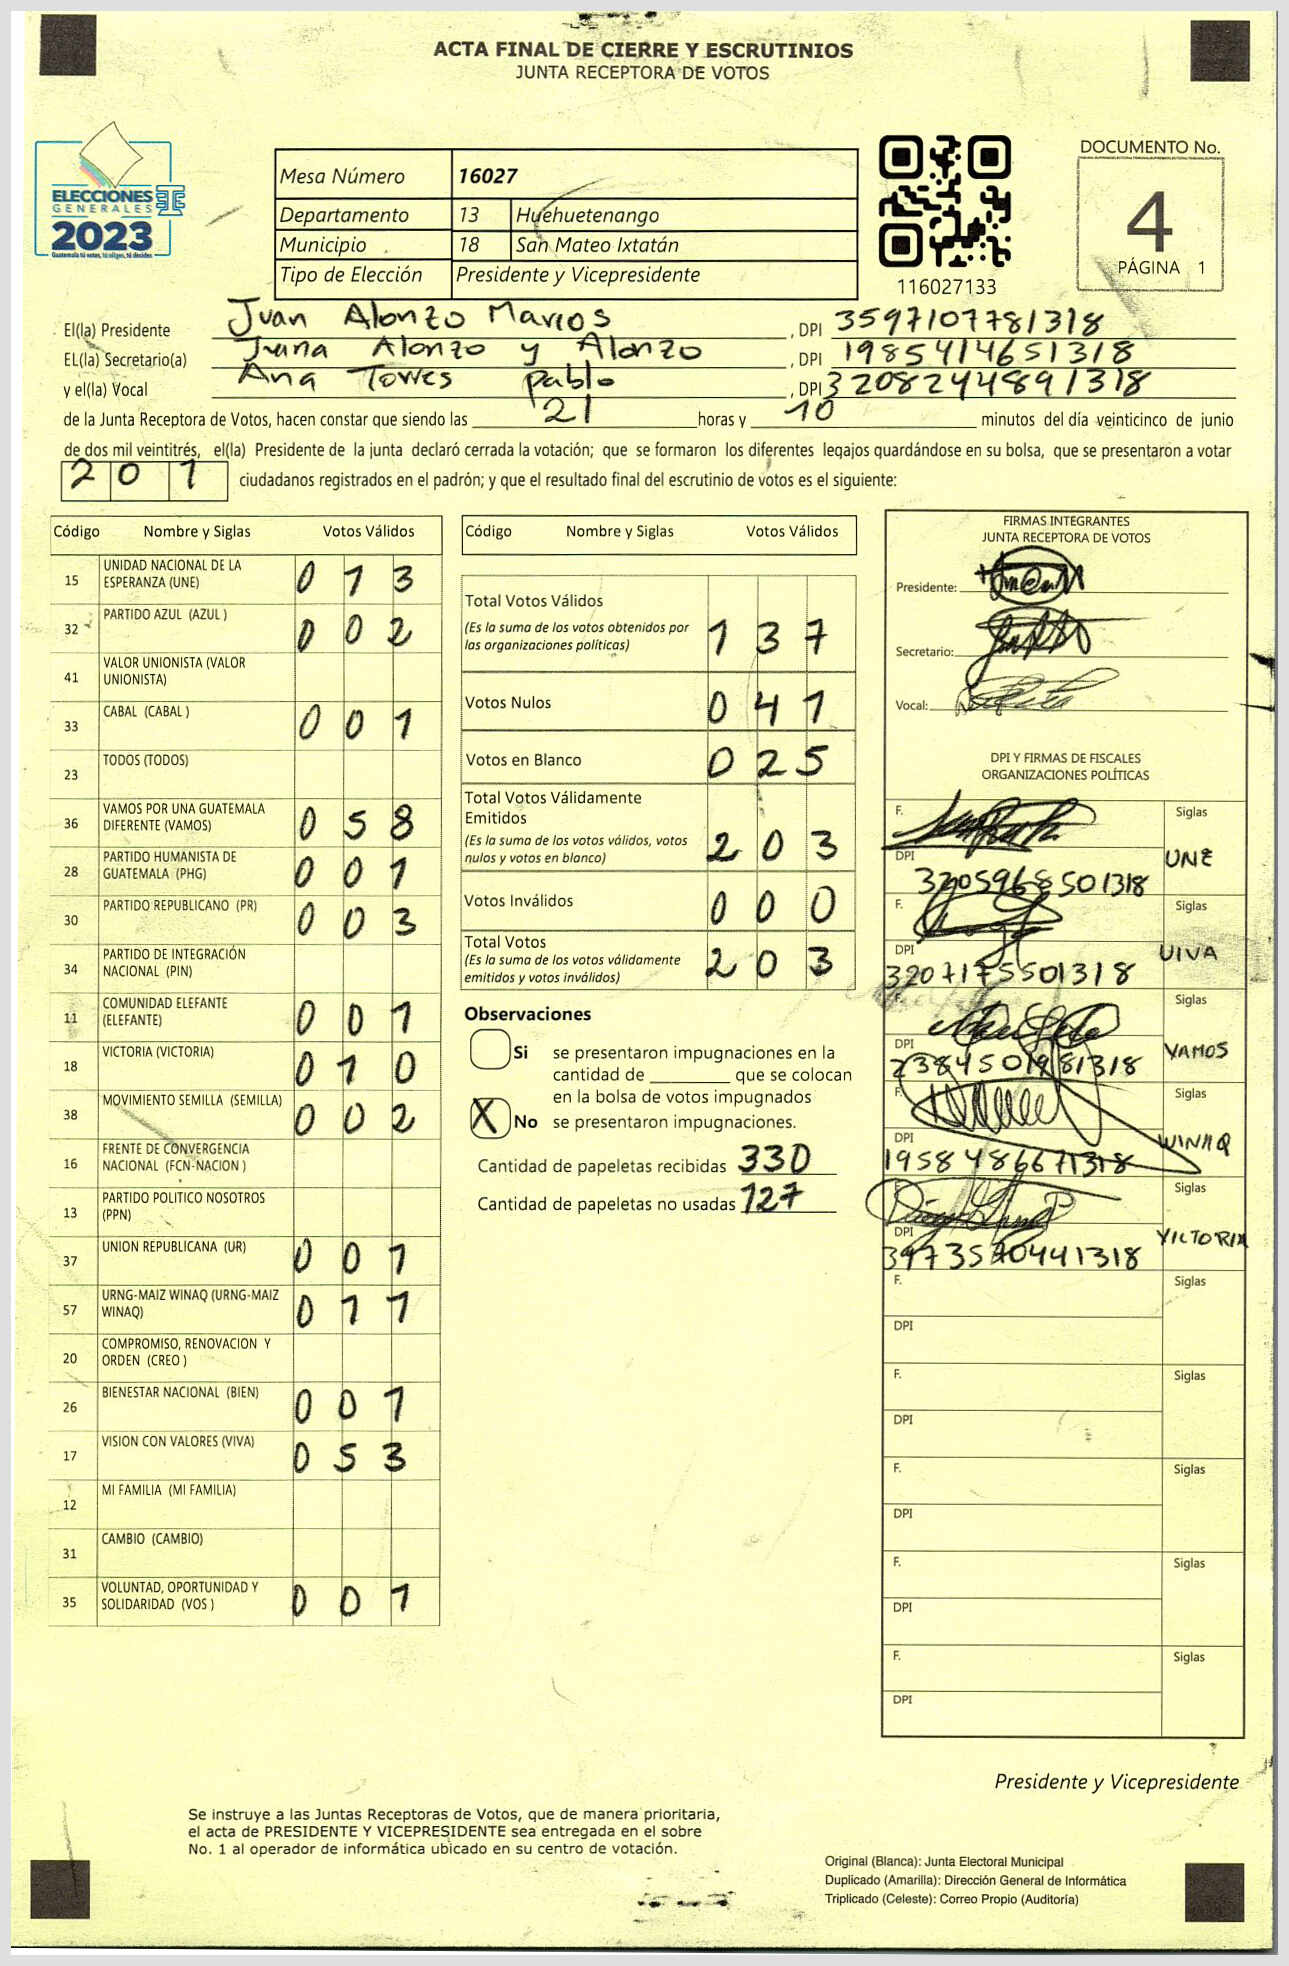 ACTA FINAL DE CIERRE Y ESCRUTINIOS
JUNTA RECEPTORA DE VOTOS
ELECCIONES
GENERALES
2023
Guatemala tú votas, tú eliges, tú decides
Mesa Número 16027
Departamento 13 Huehuetenango
Municipio 18 San Mateo Ixtatán
Tipo de Elección Presidente y Vicepresidente
116027133
DOCUMENTO No.
4
PÁGINA 1
El(la) Presidente Juan Alonzo Marcos , DPI 3597107781318
EL(la) Secretario(a) Juana Alonzo y Alonzo , DPI 1985414651318
y el(la) Vocal Ana Torres Pablo , DPI 3208244891318
de la Junta Receptora de Votos, hacen constar que siendo las 21 horas y 10 minutos del día veinticinco de junio
de dos mil veintitrés, el(la) Presidente de la junta declaró cerrada la votación; que se formaron los diferentes legajos quardándose en su bolsa, que se presentaron a votar
201 ciudadanos registrados en el padrón; y que el resultado final del escrutinio de votos es el siguiente:
Código Nombre y Siglas Votos Válidos
15 UNIDAD NACIONAL DE LA ESPERANZA (UNE) 013
32 PARTIDO AZUL (AZUL ) 002
41 VALOR UNIONISTA (VALOR UNIONISTA)
33 CABAL (CABAL ) 001
23 TODOS (TODOS)
36 VAMOS POR UNA GUATEMALA DIFERENTE (VAMOS) 058
28 PARTIDO HUMANISTA DE GUATEMALA (PHG) 001
30 PARTIDO REPUBLICANO (PR) 003
34 PARTIDO DE INTEGRACIÓN NACIONAL (PIN)
11 COMUNIDAD ELEFANTE (ELEFANTE) 001
18 VICTORIA (VICTORIA) 010
38 MOVIMIENTO SEMILLA (SEMILLA) 002
16 FRENTE DE CONVERGENCIA NACIONAL (FCN-NACION )
13 PARTIDO POLITICO NOSOTROS (PPN)
37 UNION REPUBLICANA (UR) 001
57 URNG-MAIZ WINAQ (URNG-MAIZ WINAQ) 011
20 COMPROMISO, RENOVACION Y ORDEN (CREO )
26 BIENESTAR NACIONAL (BIEN) 001
17 VISION CON VALORES (VIVA) 053
12 MI FAMILIA (MI FAMILIA)
31 CAMBIO (CAMBIO)
35 VOLUNTAD, OPORTUNIDAD Y SOLIDARIDAD (VOS ) 001
Código Nombre y Siglas Votos Válidos
Total Votos Válidos 137
(Es la suma de los votos obtenidos por
las organizaciones politicas)
Votos Nulos 041
Votos en Blanco 025
Total Votos Válidamente
Emitidos 203
(Es la suma de los votos válidos, votos
nulos y votos en blanco)
Votos Inválidos 000
Total Votos 203
(Es la suma de los votos válidamente
emitidos y votos inválidos)
Observaciones
Si se presentaron impugnaciones en la
cantidad de ________ que se colocan
en la bolsa de votos impugnados
X No se presentaron impugnaciones.
Cantidad de papeletas recibidas 330
Cantidad de papeletas no usadas 127
FIRMAS INTEGRANTES
JUNTA RECEPTORA DE VOTOS
Presidente:
Secretario:
Vocal:
DPI Y FIRMAS DE FISCALES
ORGANIZACIONES POLÍTICAS
F. Siglas
DPI 3205968501318 UNE
F. Siglas
DPI 3207175501318 UIVA
F. Siglas
DPI 2384501981318 VAMOS
F. Siglas
DPI 1958486671318 WINAQ
F. Siglas
DPI 3973570441318 VICTORIA
F. Siglas
DPI
F. Siglas
DPI
F. Siglas
DPI
F. Siglas
DPI
F. Siglas
DPI
Presidente y Vicepresidente
Se instruye a las Juntas Receptoras de Votos, que de manera prioritaria,
el acta de PRESIDENTE Y VICEPRESIDENTE sea entregada en el sobre
No. 1 al operador de informática ubicado en su centro de votación.
Original (Blanca): Junta Electoral Municipal
Duplicado (Amarilla): Dirección General de Informática
Triplicado (Celeste): Correo Propio (Auditoría)